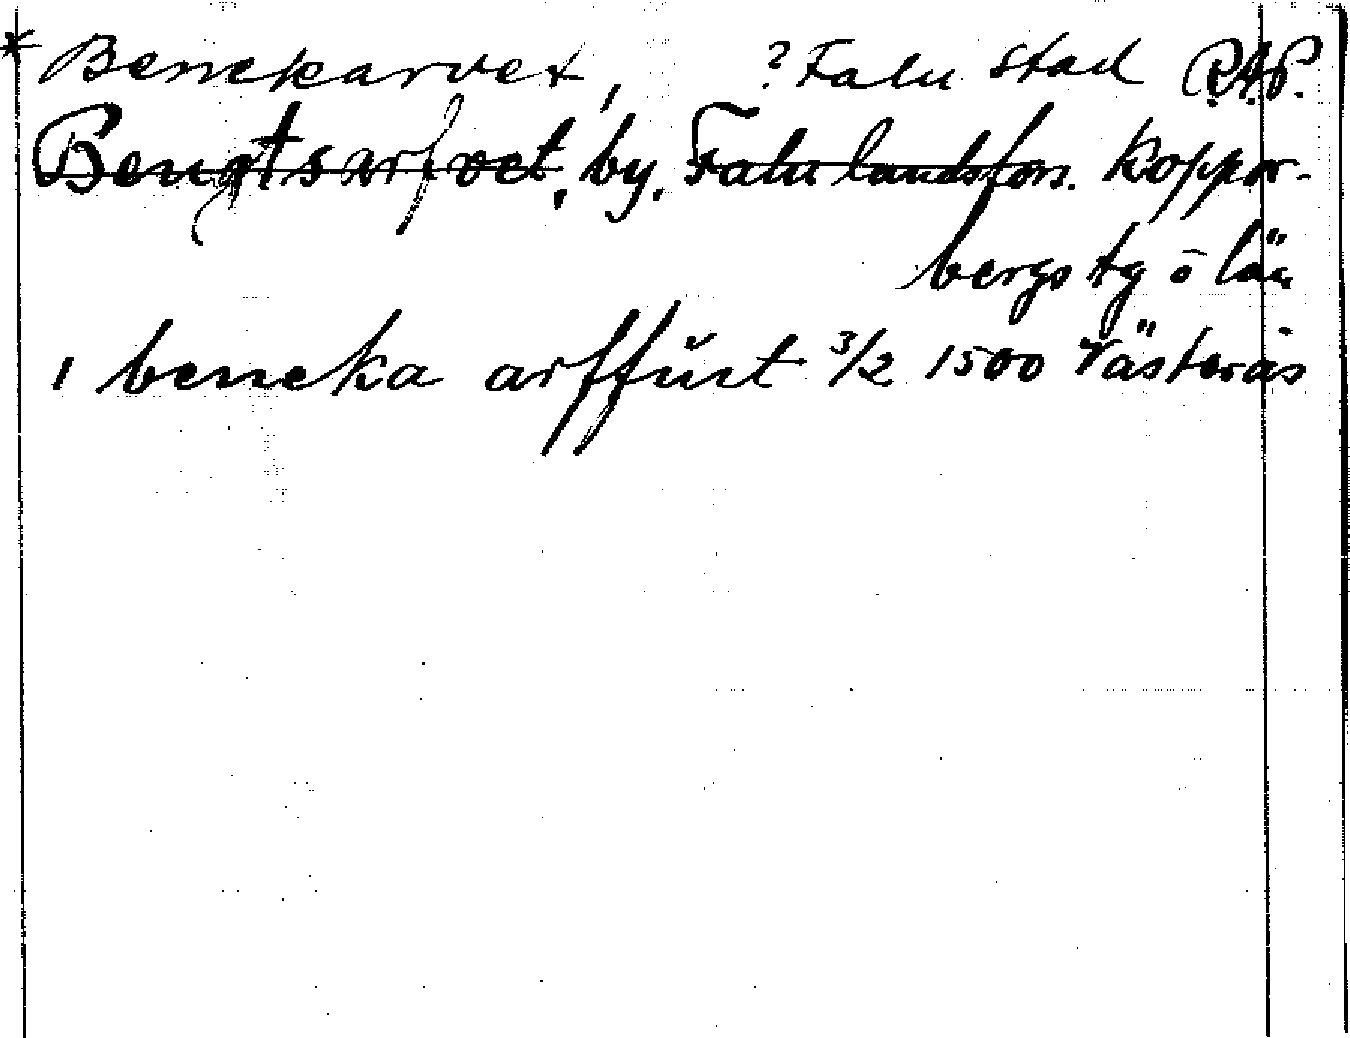 * Benekarvet, ? Falu stad R.A.P.
Bengtsarfvet, by. Falu landsförs. Koppar-
bergs tg o län
i beneka arffŭet 3/2 1500 Västerås